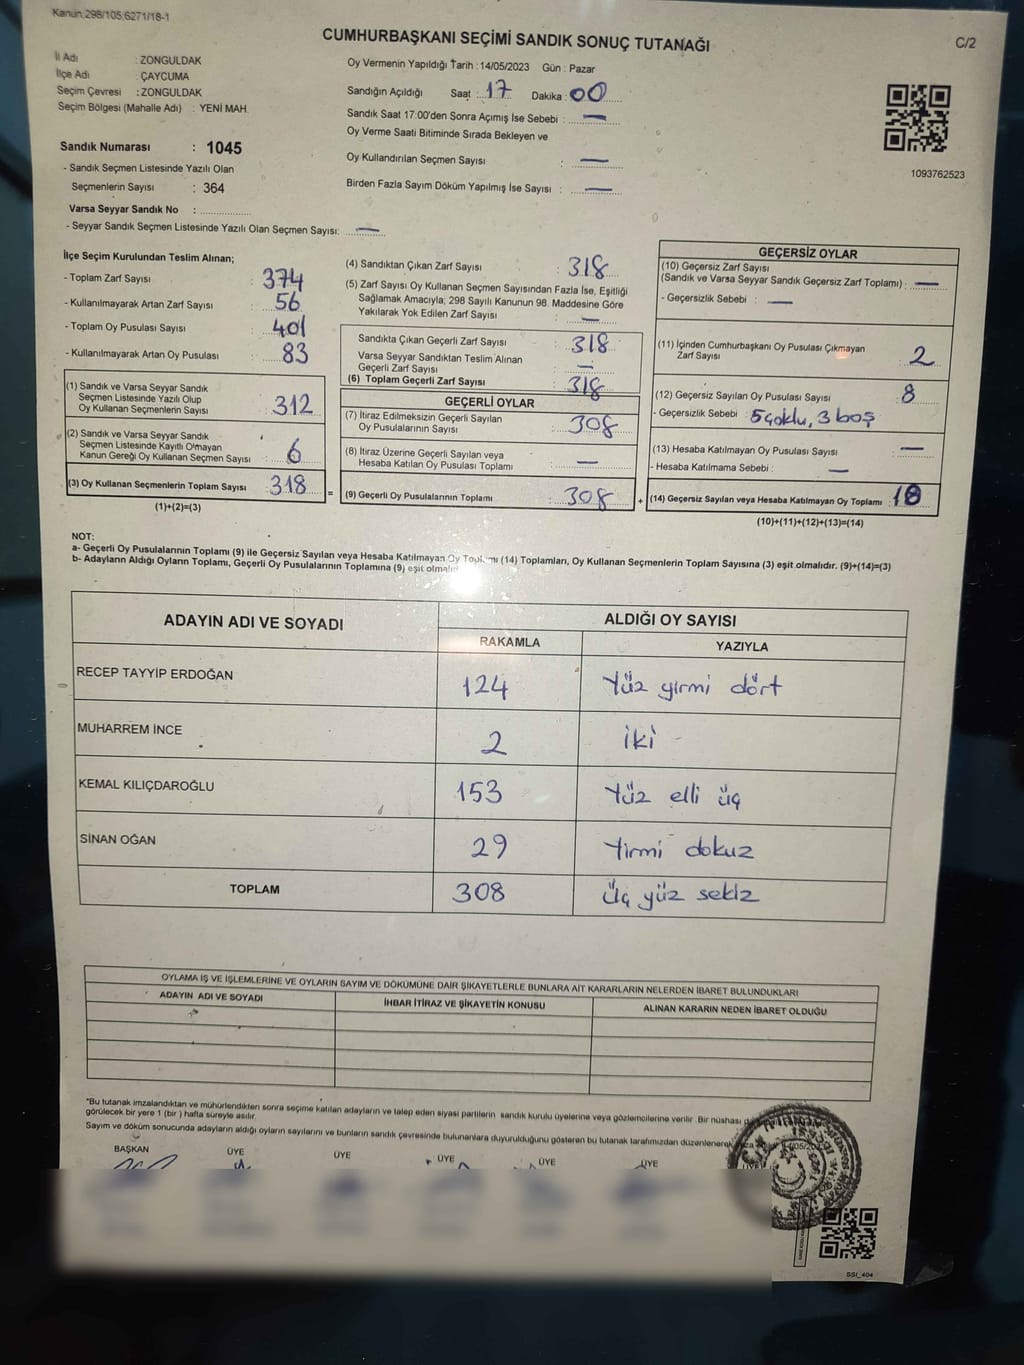 Kanun.298/105,6271/18-1
CUMHURBAŞKANI SEÇİMİ SANDIK SONUÇ TUTANAĞI
C/2
İl Adı : ZONGULDAK
İlçe Adı : ÇAYCUMA
Seçim Çevresi : ZONGULDAK
Seçim Bölgesi (Mahalle Adı) : YENİ MAH.
Sandık Numarası : 1045
- Sandık Seçmen Listesinde Yazılı Olan
Seçmenlerin Sayısı : 364
Varsa Seyyar Sandık No :
- Seyyar Sandık Seçmen Listesinde Yazılı Olan Seçmen Sayısı: —
Oy Vermenin Yapıldığı Tarih :14/05/2023 Gün : Pazar
Sandığın Açıldığı Saat : 17 Dakika : 00
Sandık Saat 17:00'den Sonra Açımış İse Sebebi : —
Oy Verme Saati Bitiminde Sırada Bekleyen ve
Oy Kullandırılan Seçmen Sayısı : —
Birden Fazla Sayım Döküm Yapılmış İse Sayısı : —
1093762523
İlçe Seçim Kurulundan Teslim Alınan;
- Toplam Zarf Sayısı : 374
- Kullanılmayarak Artan Zarf Sayısı : 56
- Toplam Oy Pusulası Sayısı : 401
- Kullanılmayarak Artan Oy Pusulası : 83
(1) Sandık ve Varsa Seyyar Sandık
Seçmen Listesinde Yazılı Olup
Oy Kullanan Seçmenlerin Sayısı : 312
(2) Sandık ve Varsa Seyyar Sandık
Seçmen Listesinde Kayıtlı Olmayan
Kanun Gereği Oy Kullanan Seçmen Sayısı : 6
(3) Oy Kullanan Seçmenlerin Toplam Sayısı : 318 =
(1)+(2)=(3)
(4) Sandıktan Çıkan Zarf Sayısı : 318
(5) Zarf Sayısı Oy Kullanan Seçmen Sayısından Fazla İse, Eşitliği
Sağlamak Amacıyla; 298 Sayılı Kanunun 98. Maddesine Göre
Yakılarak Yok Edilen Zarf Sayısı : —
Sandıkta Çıkan Geçerli Zarf Sayısı : 318
Varsa Seyyar Sandıktan Teslim Alınan
Geçerli Zarf Sayısı : —
(6) Toplam Geçerli Zarf Sayısı : 318
GEÇERLİ OYLAR
(7) İtiraz Edilmeksizin Geçerli Sayılan
Oy Pusulalarının Sayısı : 308
(8) İtiraz Üzerine Geçerli Sayılan veya
Hesaba Katılan Oy Pusulası Toplamı : —
(9) Geçerli Oy Pusulalarının Toplamı : 308 +
GEÇERSİZ OYLAR
(10) Geçersiz Zarf Sayısı
(Sandık ve Varsa Seyyar Sandık Geçersiz Zarf Toplamı) : —
- Geçersizlik Sebebi : —
(11) İçinden Cumhurbaşkanı Oy Pusulası Çıkmayan
Zarf Sayısı : 2
(12) Geçersiz Sayılan Oy Pusulası Sayısı : 8
- Geçersizlik Sebebi : 5 çoklu, 3 boş
(13) Hesaba Katılmayan Oy Pusulası Sayısı : —
- Hesaba Katılmama Sebebi : —
(14) Geçersiz Sayılan veya Hesaba Katılmayan Oy Toplamı : 10
(10)+(11)+(12)+(13)=(14)
NOT:
a- Geçerli Oy Pusulalarının Toplamı (9) ile Geçersiz Sayılan veya Hesaba Katılmayan Oy Toplamı (14) Toplamları, Oy Kullanan Seçmenlerin Toplam Sayısına (3) eşit olmalıdır. (9)+(14)=(3)
b- Adayların Aldığı Oyların Toplamı, Geçerli Oy Pusulalarının Toplamına (9) eşit olmalıdır
ADAYIN ADI VE SOYADI ALDIĞI OY SAYISI
RAKAMLA YAZIYLA
RECEP TAYYİP ERDOĞAN 124 Yüz yirmi dört
MUHARREM İNCE 2 iki
KEMAL KILIÇDAROĞLU 153 Yüz elli üç
SİNAN OĞAN 29 Yirmi dokuz
TOPLAM 308 Üç yüz sekiz
OYLAMA İŞ VE İŞLEMLERİNE VE OYLARIN SAYIM VE DÖKÜMÜNE DAİR ŞİKAYETLERLE BUNLARA AİT KARARLARIN NELERDEN İBARET BULUNDUKLARI
ADAYIN ADI VE SOYADI İHBAR İTİRAZ VE ŞİKAYETİN KONUSU ALINAN KARARIN NEDEN İBARET OLDUĞU
*Bu tutanak imzalandıktan ve mühürlendikten sonra seçime katılan adayların ve talep eden siyasi partilerin sandık kurulu üyelerine veya gözlemcilerine verilir. Bir nüshası
görülecek bir yere 1 (bir) hafta süreyle asılır.
Sayım ve döküm sonucunda adayların aldığı oyların sayılarını ve bunların sandık çevresinde bulunanlara duyurulduğunu gösteren bu tutanak tarafımızdan düzenlenerek
BAŞKAN ÜYE ÜYE ÜYE ÜYE ÜYE
SSİ_404